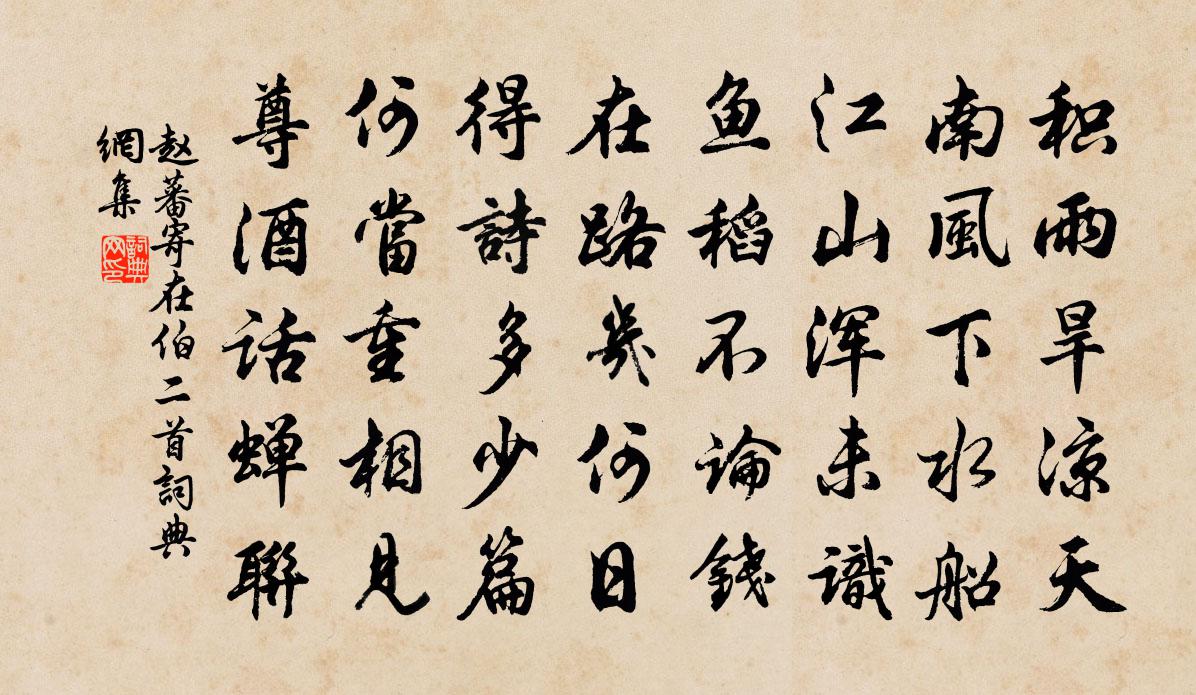 积雨旱凉天
南風下水船
江山浑未識
鱼稻不論錢
在路幾何日
得詩多少篇
何當重相見
尊酒话蝉聯
赵蕃寄在伯二首詞典
網集
詞典
网印